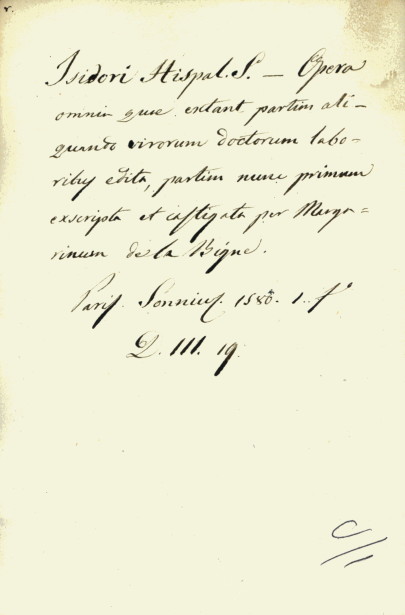 Isidori Hispal. S. — Opera
omnia que extant partim ali-
quando virorum doctorum labo-
ribus edita, partim nunc primum
exscripta et castigata per Marga-
rinum de la Bigne.
Paris. Sonnius. 1580. 1. fº
D. III. 19.